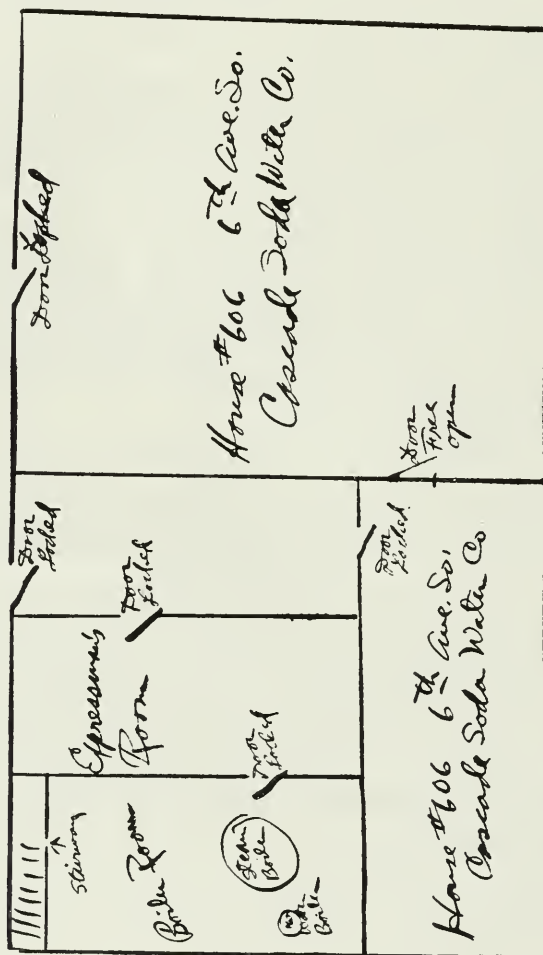 Door Locked
House #606 6th Ave. So.
Cascade Soda Water Co.
Door
Free
open
Door
Locked
Door
Locked
Door
Locked
Expressman's
Room
Door
Locked
Stairway
Boiler Room
Steam
Boiler
Boiler
House #606 6th Ave. So.
Cascade Soda Water Co